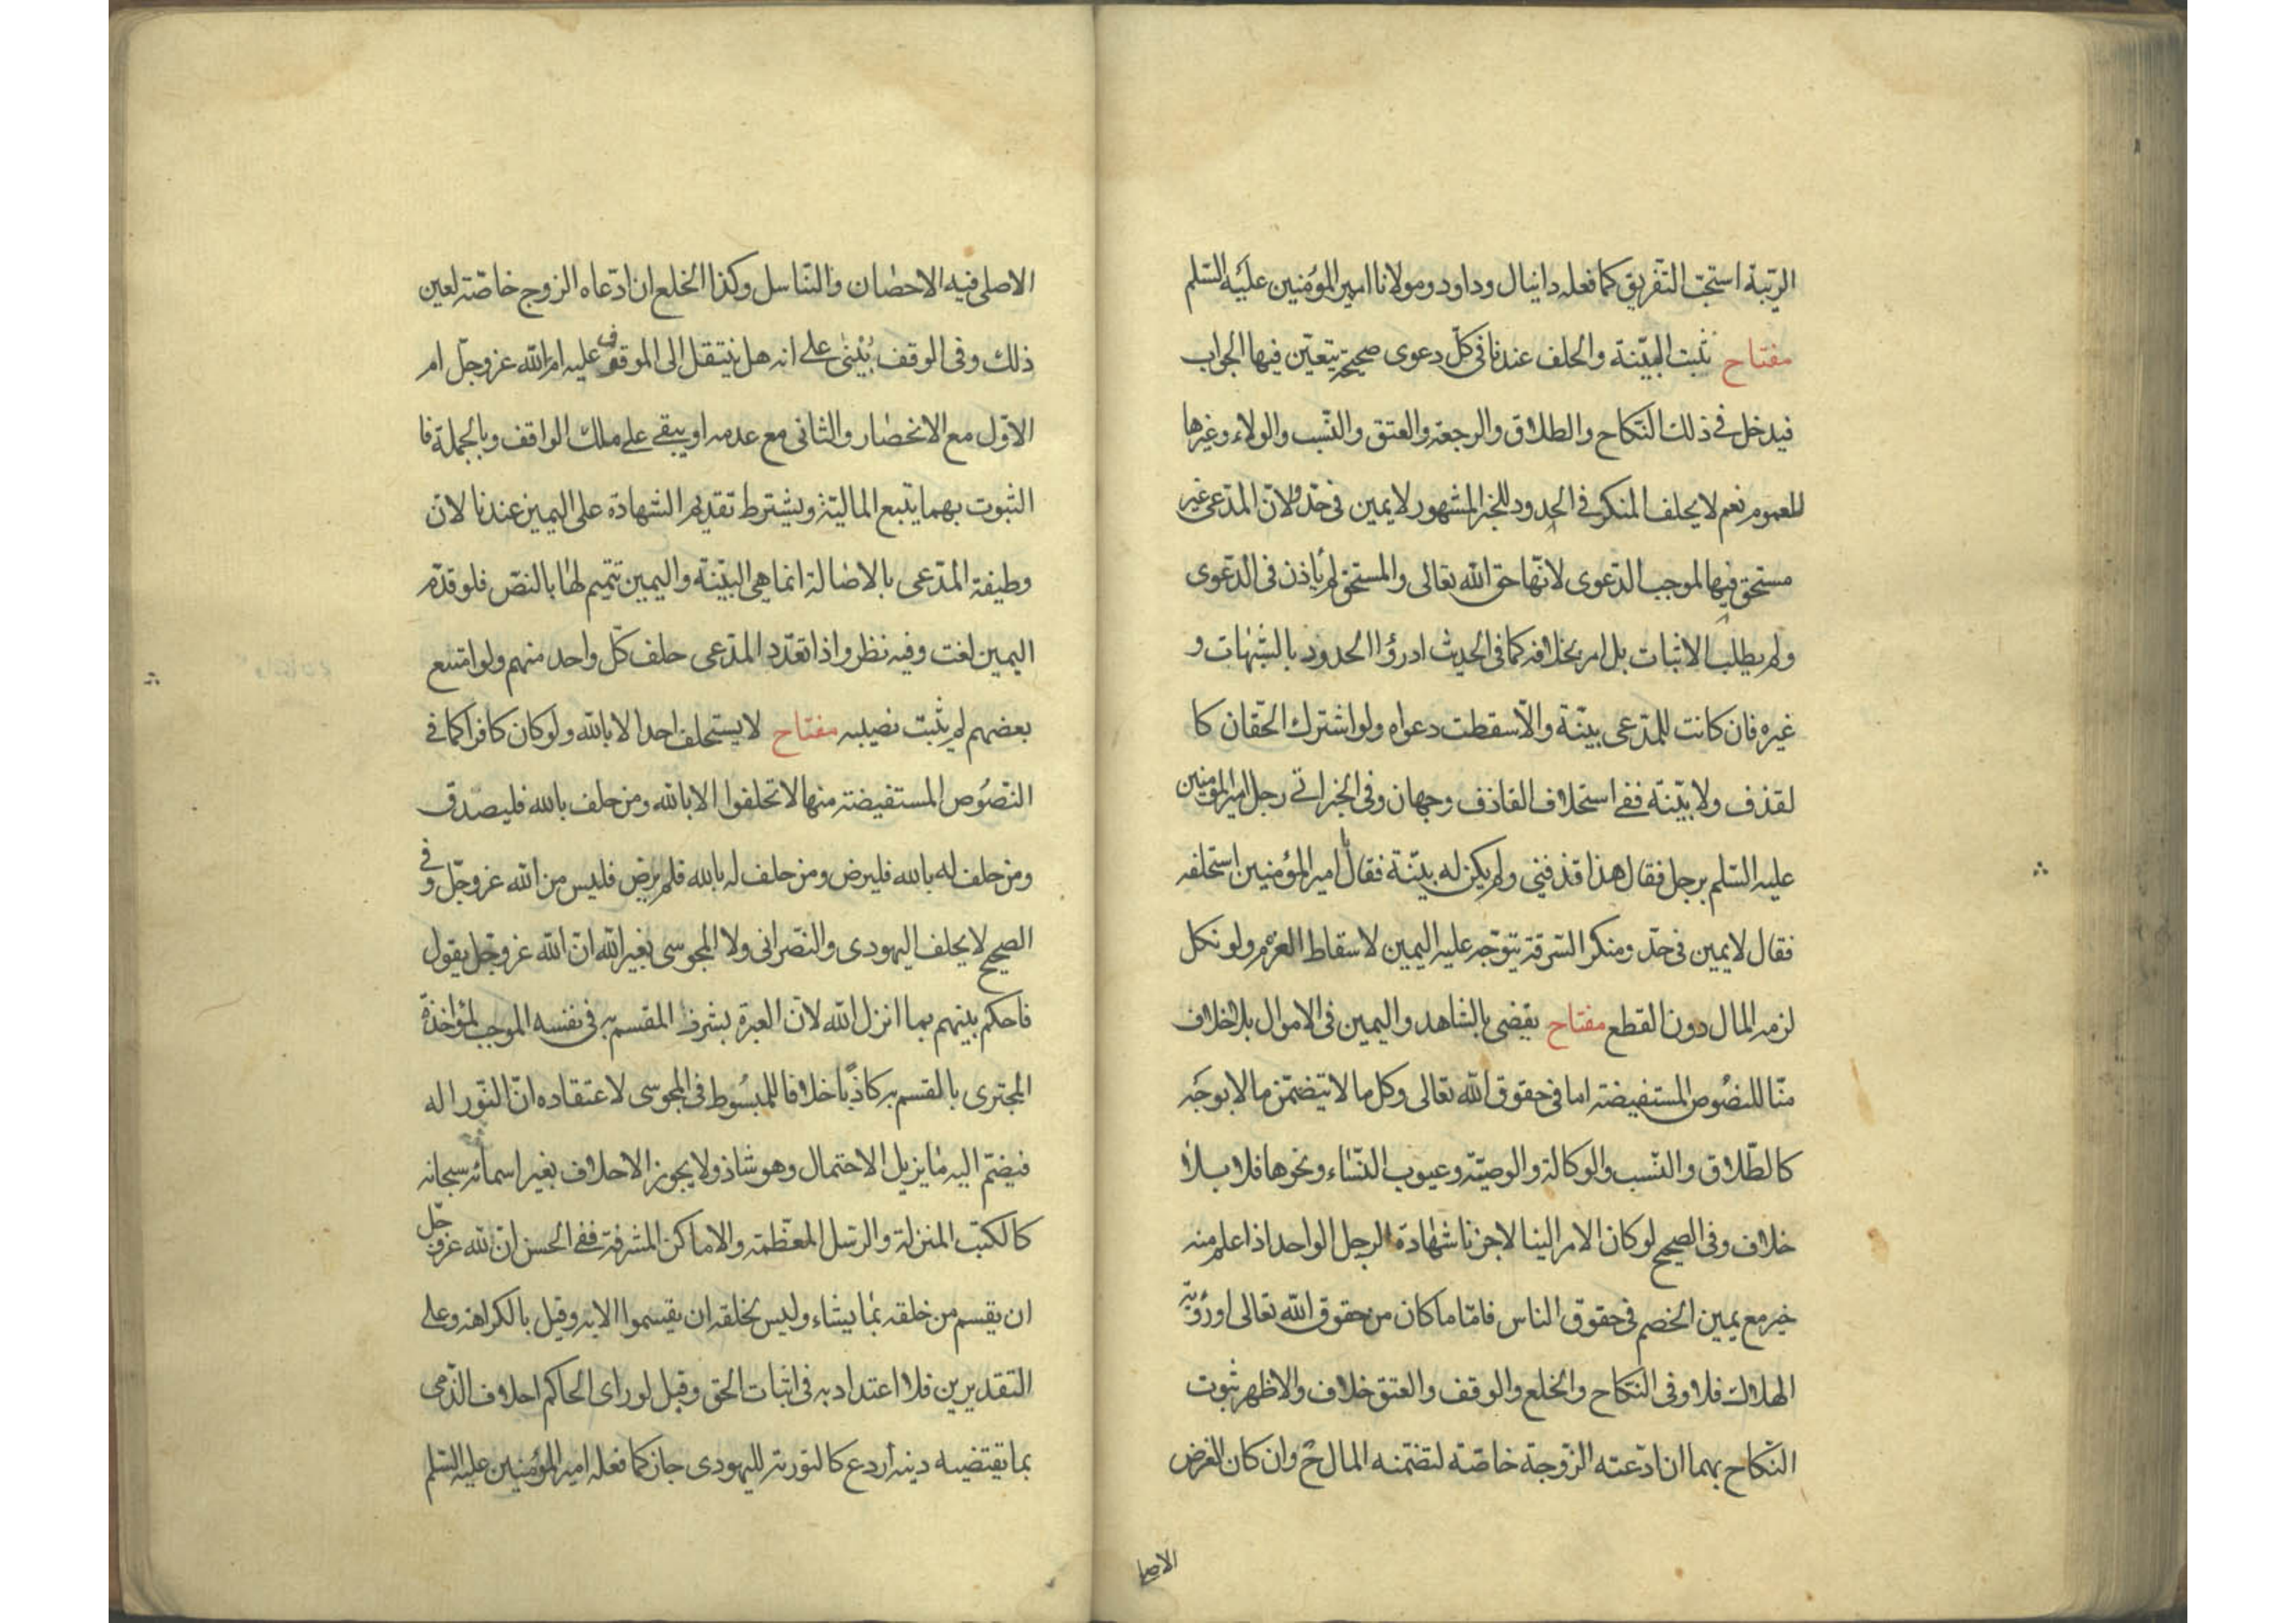 الريبة استحب التفريق كما فعله دانيال وداود ومولانا امير المؤمنين عليه السلم
مفتاح تثبت البينة والحلف عندنا فى كل دعوى صحيحة يتعين فيها الجواب
فيدخل فى ذلك النكاح والطلاق والرجعة والعتق والنسب والولاء وغيرها
للعموم نعم لا يحلف المنكر فى الحدود للخبر المشهور لا يمين فى حد ولان المدعى غير
مستحق فيها لموجب الدعوى لانها حق الله تعالى والمستحق لم يأذن فى الدعوى
ولم يطلب الاثبات بل امر بخلافه كما فى الحديث ادرؤا الحدود بالشبهات و
غيره فان كانت للمدعى بينة والا سقطت دعواه ولو اشترك الحقان كا
لقذف ولا بينة ففى استحلاف القاذف وجهان وفى الخبر اتى رجل امير المؤمنين
عليه السلم برجل فقال هذا قذفنى ولم يكن له بينة فقال يا امير المؤمنين استحلفه
فقال لا يمين فى حد ومنكر السرقة يتوجه عليه اليمين لاسقاط الغرم ولو نكل
لزمه المال دون القطع مفتاح يقضى بالشاهد واليمين فى الاموال بلا خلاف
منا للنصوص المستفيضة اما فى حقوق الله تعالى وكل ما لا يتضمن مالا بوجه
كالطلاق والنسب والوكالة والوصية وعيوب النساء ونحوها فلا بلا
خلاف وفى الصحيح لو كان الامر الينا لاجزنا شهادة الرجل الواحد اذا علم منه
خير مع يمين الخصم فى حقوق الناس فاما ما كان من حقوق الله تعالى او رؤية
الهلال فلا وفى النكاح والخلع والوقف والعتق خلاف والاظهر ثبوت
النكاح بهما ان ادعته الزوجة خاصة لتضمنه المال ح وان كان الغرض
الاصلى فيه الاحصان والتناسل وكذا الخلع ان ادعاه الزوج خاصة لعين
ذلك وفى الوقف يبنى على انه هل ينتقل الى الموقوف عليه ام الله عز وجل ام
الاول مع الانحصار والثانى مع عدمه او يبقى على ملك الواقف وبالجملة فا
الثبوت بهما يتبع المالية ويشترط تقديم الشهادة على اليمين عندنا لان
وظيفة المدعى بالاصالة انما هى البينة واليمين تتميم لها بالنص فلو قدم
اليمين لغت وفيه نظر واذا تعدد المدعى حلف كل واحد منهم ولو امتنع
بعضهم لم يثبت نصيبه مفتاح لا يستحلف احد الا بالله ولو كان كافرا كما فى
النصوص المستفيضة منها لا تحلفوا الا بالله ومن حلف بالله فليصدق
ومن حلف له بالله فليرض ومن حلف له بالله فلم يرض فليس من الله عز وجل وفى
الصحيح لا يحلف اليهودى والنصرانى ولا المجوسى بغير الله ان الله عز وجل يقول
فاحكم بينهم بما انزل الله لان العبرة بشرف المقسم به فى نفسه الموجب لمؤاخذة
المجترى بالقسم به كاذبا خلافا للمبسوط فى المجوسى لاعتقاده ان النور اله
فيضم اليه ما يزيل الاحتمال وهو شاذ ولا يجوز الاحلاف بغير اسمائه سبحانه
كالكتب المنزلة والرسل المعظمة والاماكن المشرفة ففى الحسن ان لله عز وجل
ان يقسم من خلقه بما يشاء وليس لخلقه ان يقسموا الا به وقيل بالكراهة وعلى
التقديرين فلا اعتداد به فى اثبات الحق وقيل لو راى الحاكم احلاف الذمى
بما يقتضيه دينه اردع كالتورية لليهودى جاز كما فعله امير المؤمنين عليه السلم